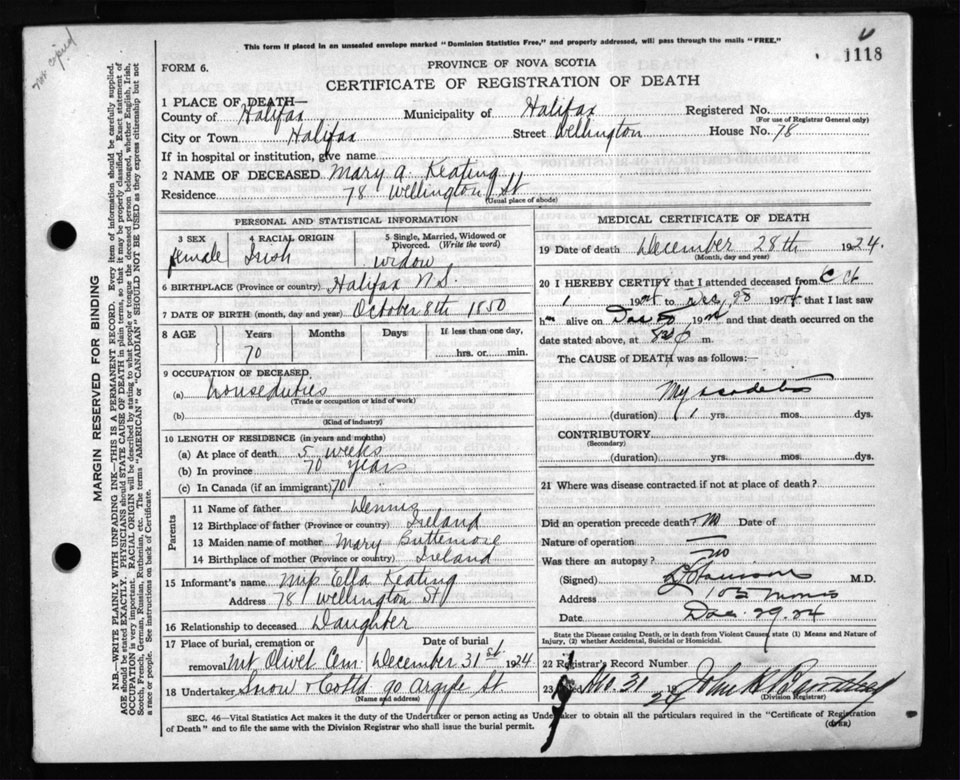 not copied
This form if placed in an unsealed envelope marked "Dominion Statistics Free," and properly addressed, will pass through the mails "FREE."
1118
FORM 6.
PROVINCE OF NOVA SCOTIA
CERTIFICATE OF REGISTRATION OF DEATH
1 PLACE OF DEATH—
County of Halifax Municipality of Halifax Registered No.
(For use of Registrar General only)
City or Town Halifax Street Wellington House No. 78
If in hospital or institution, give name
2 NAME OF DECEASED Mary A. Keating
Residence 78 Wellington St
(Usual place of abode)
PERSONAL AND STATISTICAL INFORMATION
3 SEX 4 RACIAL ORIGIN 5 Single, Married, Widowed or Divorced. (Write the word)
female Irish widow
6 BIRTHPLACE (Province or country) Halifax N.S.
7 DATE OF BIRTH (month, day and year) October 8th 1850
8 AGE Years Months Days If less than one day,
70 hrs. or min.
9 OCCUPATION OF DECEASED
(a) houseduties
(Trade or occupation or kind of work)
(b)
(Kind of industry)
10 LENGTH OF RESIDENCE (in years and months)
(a) At place of death 5 weeks
(b) In province 70 years
(c) In Canada (if an immigrant) 70
Parents
11 Name of father Dennis
12 Birthplace of father (Province or country) Ireland
13 Maiden name of mother Mary
14 Birthplace of mother (Province or country) Ireland
15 Informant's name Miss Ella Keating
Address 78 Wellington St
16 Relationship to deceased Daughter
17 Place of burial, cremation or removal Date of burial
Mt Olivet Cem. December 31st 1924
18 Undertaker Snow & Co Ltd 90 Argyle St
(Name and address)
MEDICAL CERTIFICATE OF DEATH
19 Date of death December 28th 1924.
(Month, day and year)
20 I HEREBY CERTIFY that I attended deceased from
to Dec 28 19 that I last saw
h alive on Dec 19 and that death occurred on the
date stated above, at m.
The CAUSE of DEATH was as follows:—
(duration) 1 yrs. mos. dys.
CONTRIBUTORY
(Secondary)
(duration) yrs. mos. dys.
21 Where was disease contracted if not at place of death?
Did an operation precede death? no Date of
Nature of operation —
Was there an autopsy? no
(Signed) M.D.
Address 105 Morris
Date Dec. 29. 24
State the Disease causing Death, or in death from Violent Causes, state (1) Means and Nature of Injury, (2) whether Accidental, Suicidal or Homicidal.
22 Registrar's Record Number
23 Filed 31 19 24 John
(Division Registrar)
SEC. 46—Vital Statistics Act makes it the duty of the Undertaker or person acting as Undertaker to obtain all the particulars required in the "Certificate of Registration
of Death" and to file the same with the Division Registrar who shall issue the burial permit.
(OVER)
MARGIN RESERVED FOR BINDING
N.B.—WRITE PLAINLY WITH UNFADING INK—THIS IS A PERMANENT RECORD. Every item of information should be carefully supplied.
AGE should be stated EXACTLY. PHYSICIANS should STATE CAUSE OF DEATH in plain terms, so that it may be properly classified. Exact statement of
OCCUPATION is very important. RACIAL ORIGIN will be described by stating to what people or tongue the deceased person belonged, whether English, Irish,
Scotch, French, German, Russian, Ruthenian, etc. The terms "AMERICAN" or "CANADIAN" SHOULD NOT BE USED as they express citizenship but not
a race or people. See instructions on back of Certificate.